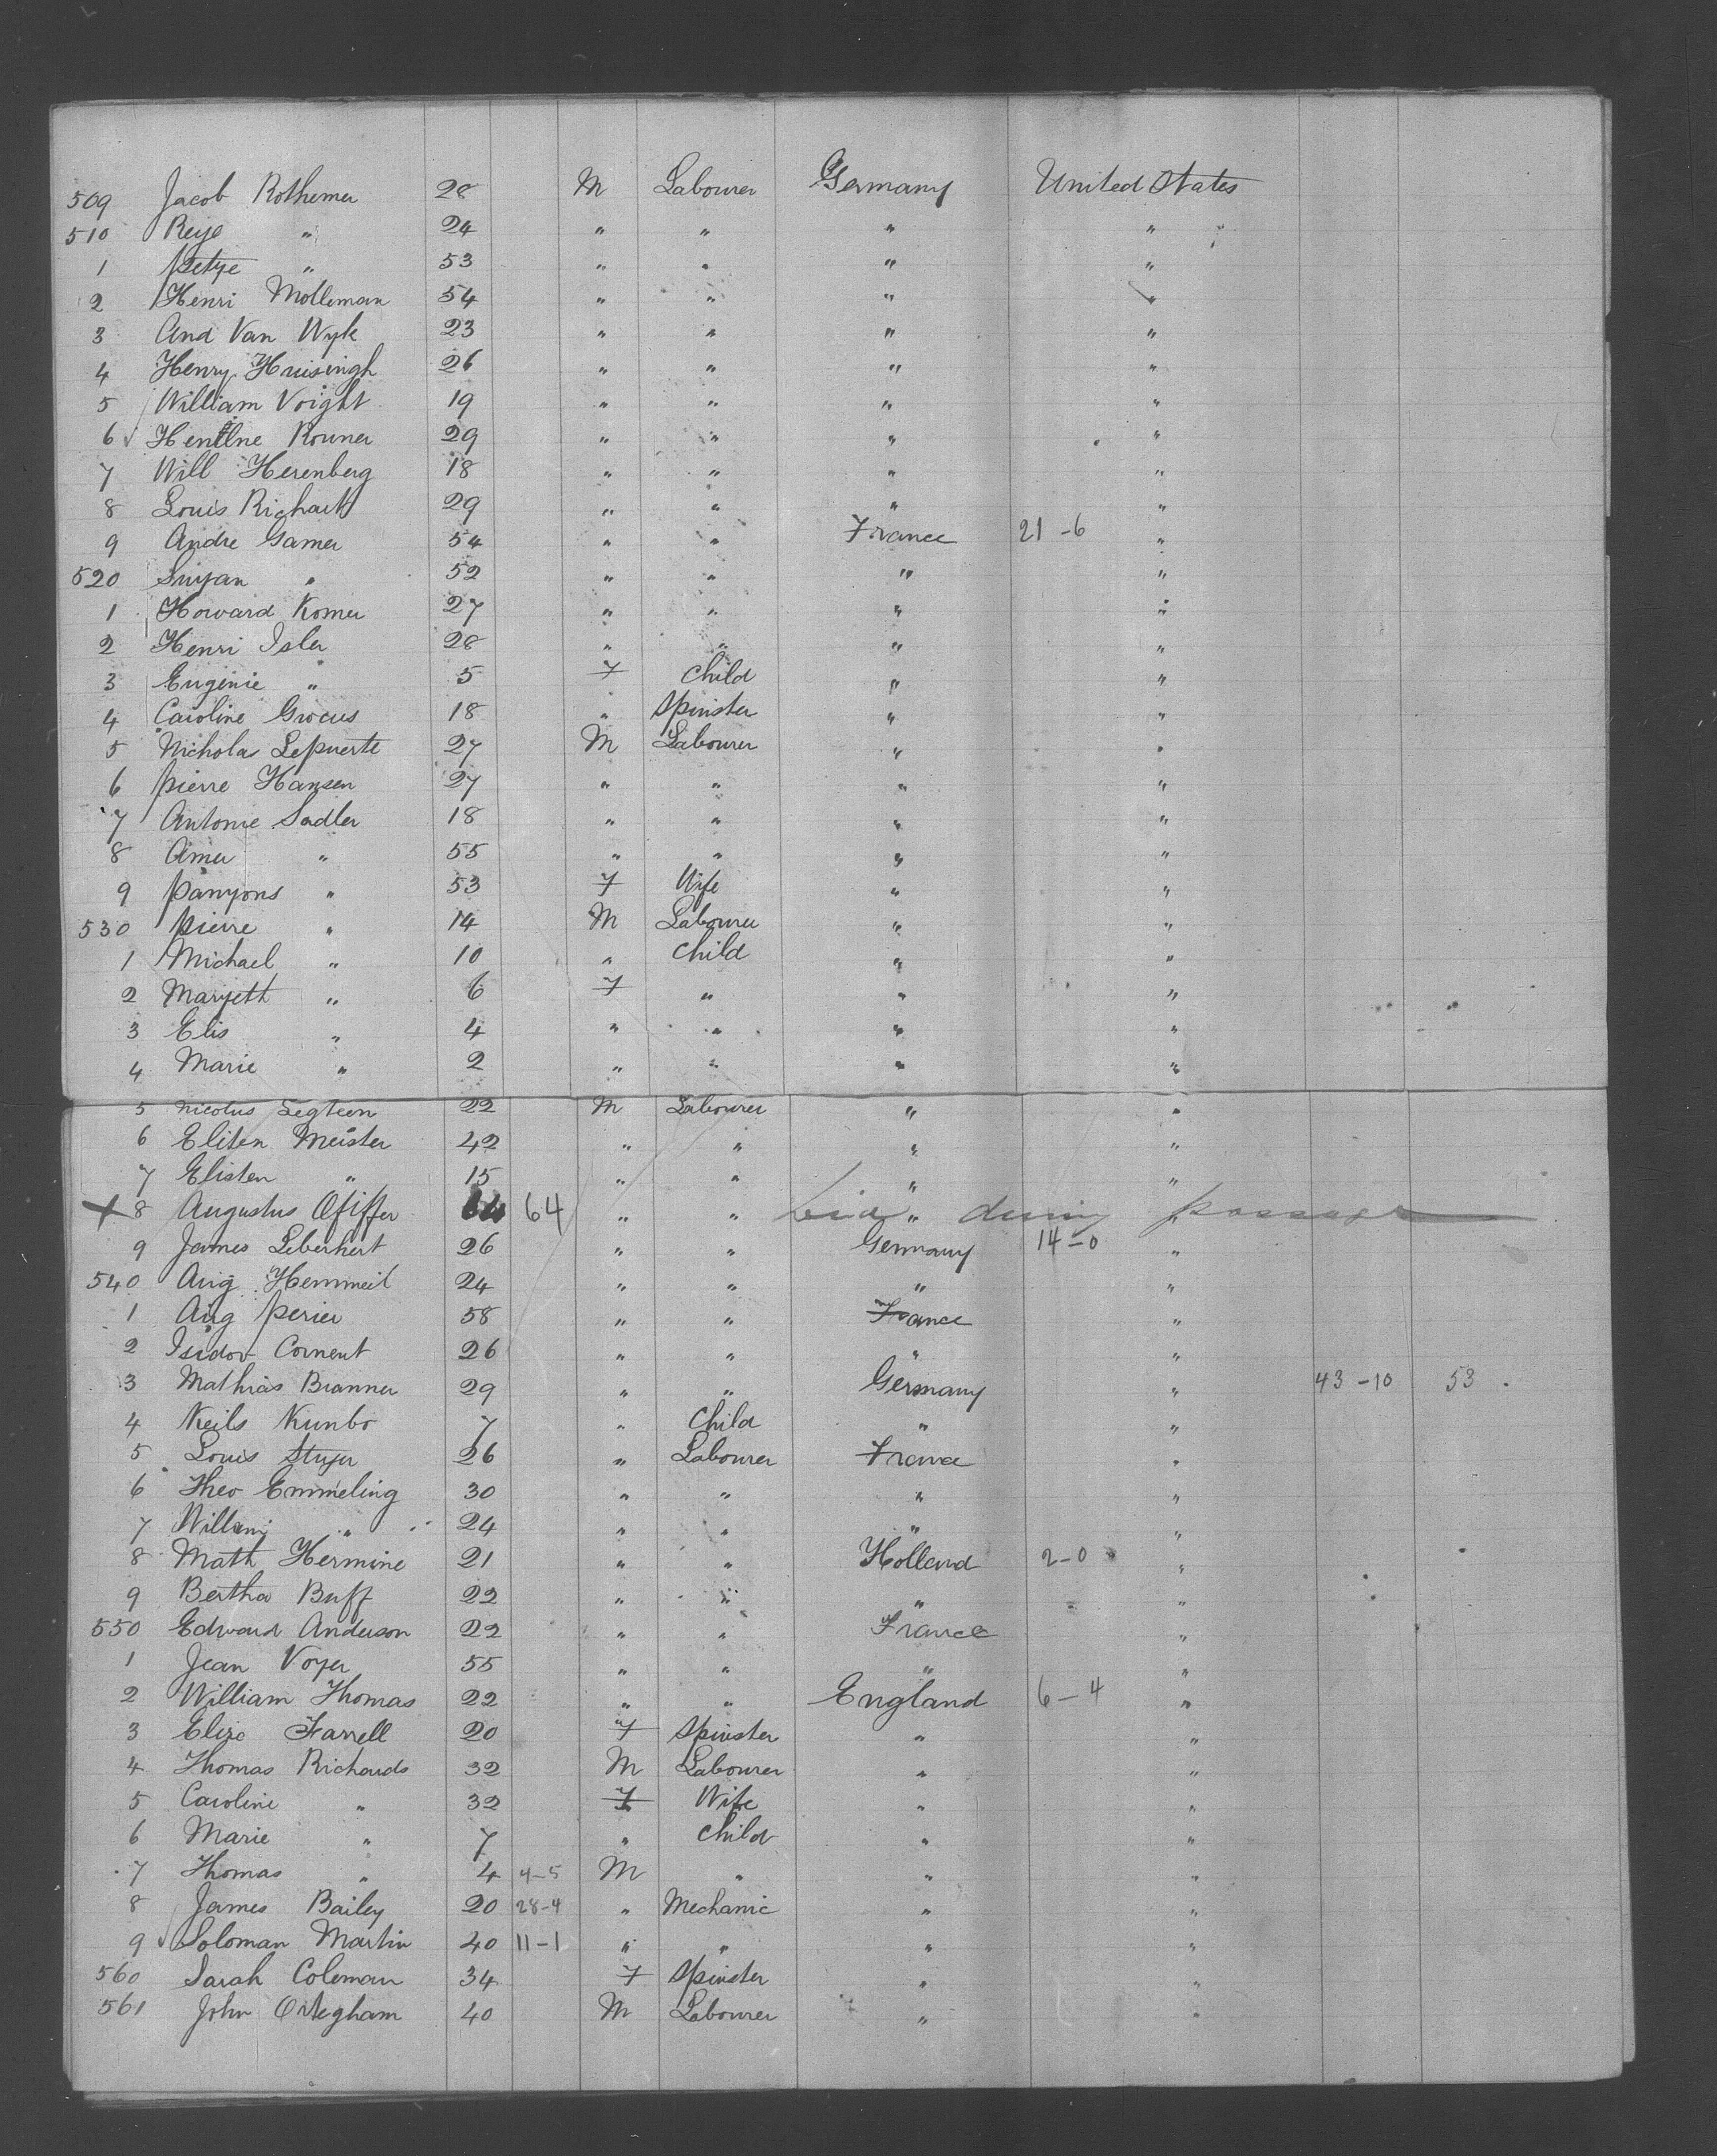 509 Jacob Rothemer 28 M Labourer Germany United States
510 Reye " 24 " " " "
1 Petye " 53 " " " "
2 Henri Molleman 54 " " " "
3 And Van Wyk 23 " " " "
4 Henry Huisingh 26 " " " "
5 William Voight 19 " " " "
6 Rouner 29 " " " "
7 Will Herenberg 18 " " " "
8 Louis Richart 29 " " " "
9 Andre Gamer 54 " " France 21-6 "
520 " 52 " " " "
1 Howard Komer 27 " " " "
2 Henri Isler 28 " " " "
3 Eugenie " 5 F Child " "
4 Caroline Grocus 18 " Spinster " "
5 Nicholas Lepuerte 27 M Labourer " "
6 Pierre Hansen 27 " " " "
7 Antonie Sadler 18 " " " "
8 Amer " 55 " " " "
9 Panyons " 53 F Wife " "
530 Pierre " 14 M Labourer " "
1 Michael " 10 " Child " "
2 Maryett " 6 F " " "
3 Elis " 4 " " " "
4 Marie " 2 " " " "
5 Nicolus Legteen 22 M Labourer " "
6 Eliten Meister 42 " " " "
7 Elisten " 15 " " " "
8 Augustus Ofiffer 64 64 " " " during passage "
9 James Leberhert 26 " " Germany 14-0 "
540 Aug Hemmeil 24 " " " "
1 Aug Perier 58 " " France "
2 Isidor Cornent 26 " " " "
3 Mathias Branner 29 " " Germany " 43-10 53
4 Neils Kunbo 7 " Child " "
5 Louis Styer 26 " Labourer France "
6 Theo Emmeling 30 " " " "
7 Willem " 24 " " " "
8 Math Hermine 21 " " Holland 2-0 "
9 Bertha Buff 22 " " " "
550 Edward Anderson 22 " " France "
1 Jean Voyer 55 " " " "
2 William Thomas 22 " " England 6-4 "
3 Eliza Farrell 20 F Spinster " "
4 Thomas Richards 32 M Labourer " "
5 Caroline " 32 F Wife " "
6 Marie " 7 " Child " "
7 Thomas " 4 4-5 M " " "
8 James Bailey 20 28-4 " Mechanic " "
9 Soloman Martin 40 11-1 " " " "
560 Sarah Coleman 34 F Spinster " "
561 John Ortegham 40 M Labourer " "